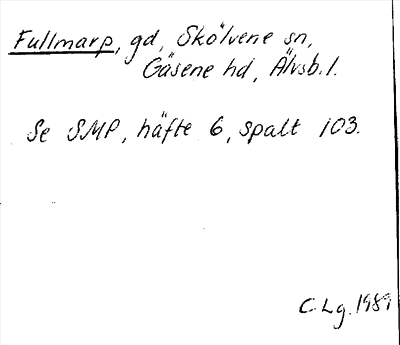 Fullmarp, gd, Skölvene sn,
Gäsene hd, Älvsb. l.
Se SMP, häfte 6, spalt 103.
C.Lg. 1989